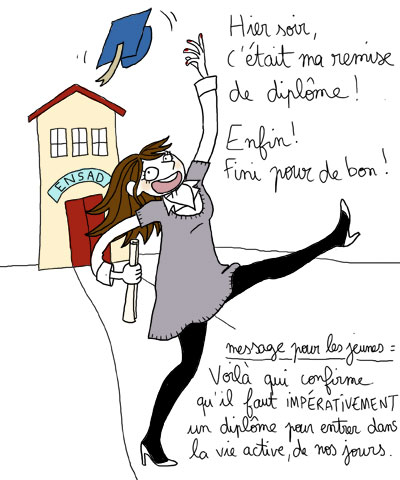 Hier soir,
c'était ma remise
de diplôme !
Enfin !
Fini pour de bon !
ENSAD
message pour les jeunes =
Voilà qui confirme
qu'il faut IMPÉRATIVEMENT
un diplôme pour entrer dans
la vie active, de nos jours.